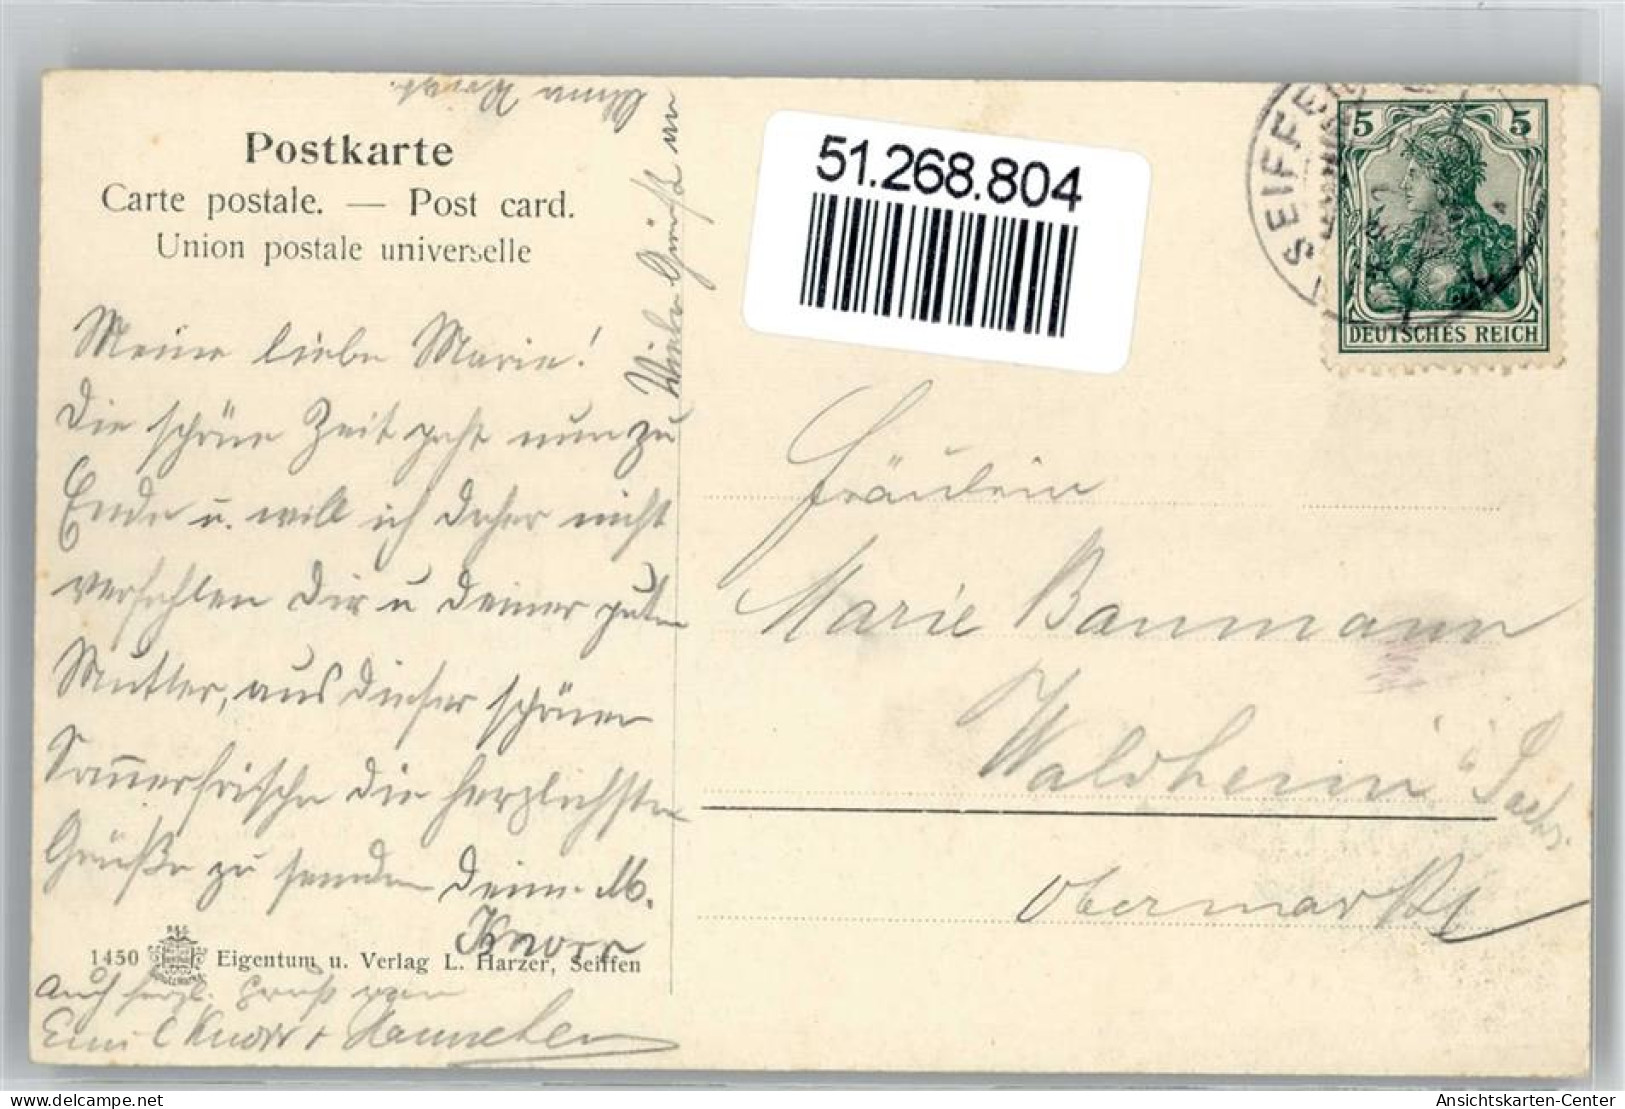 Postkarte
Carte postale. — Post card.
Union postale universelle
Meine liebe Marie!
Die schöne Zeit geht nun zu
Ende u. will ich daher nicht
verfehlen Dir u Deiner guten
Mutter, aus dieser schönen
Somerfrische die herzlichsten
Grüße zu senden Deine M.
Knorr
1450 Eigentum u. Verlag L. Harzer, Seiffen
Auch herzl. Gruß von
Emil Knorr + Hannchen
Viele Grüße
51.268.804
SEIFFEN
5 5
DEUTSCHES REICH
Fräulein
Marie Baumann
Waldheim i. Sachs.
Obermarkt
Ansichtskarten-Center
https://www.ansichtskarten-center.de/